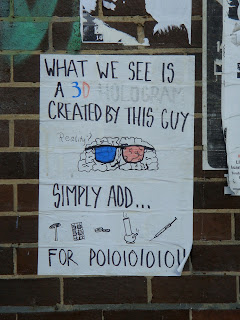 WHAT WE SEE IS
A 3D HOLOGRAM
CREATED BY THIS GUY
Reality?
SIMPLY ADD...
FOR P01010101011